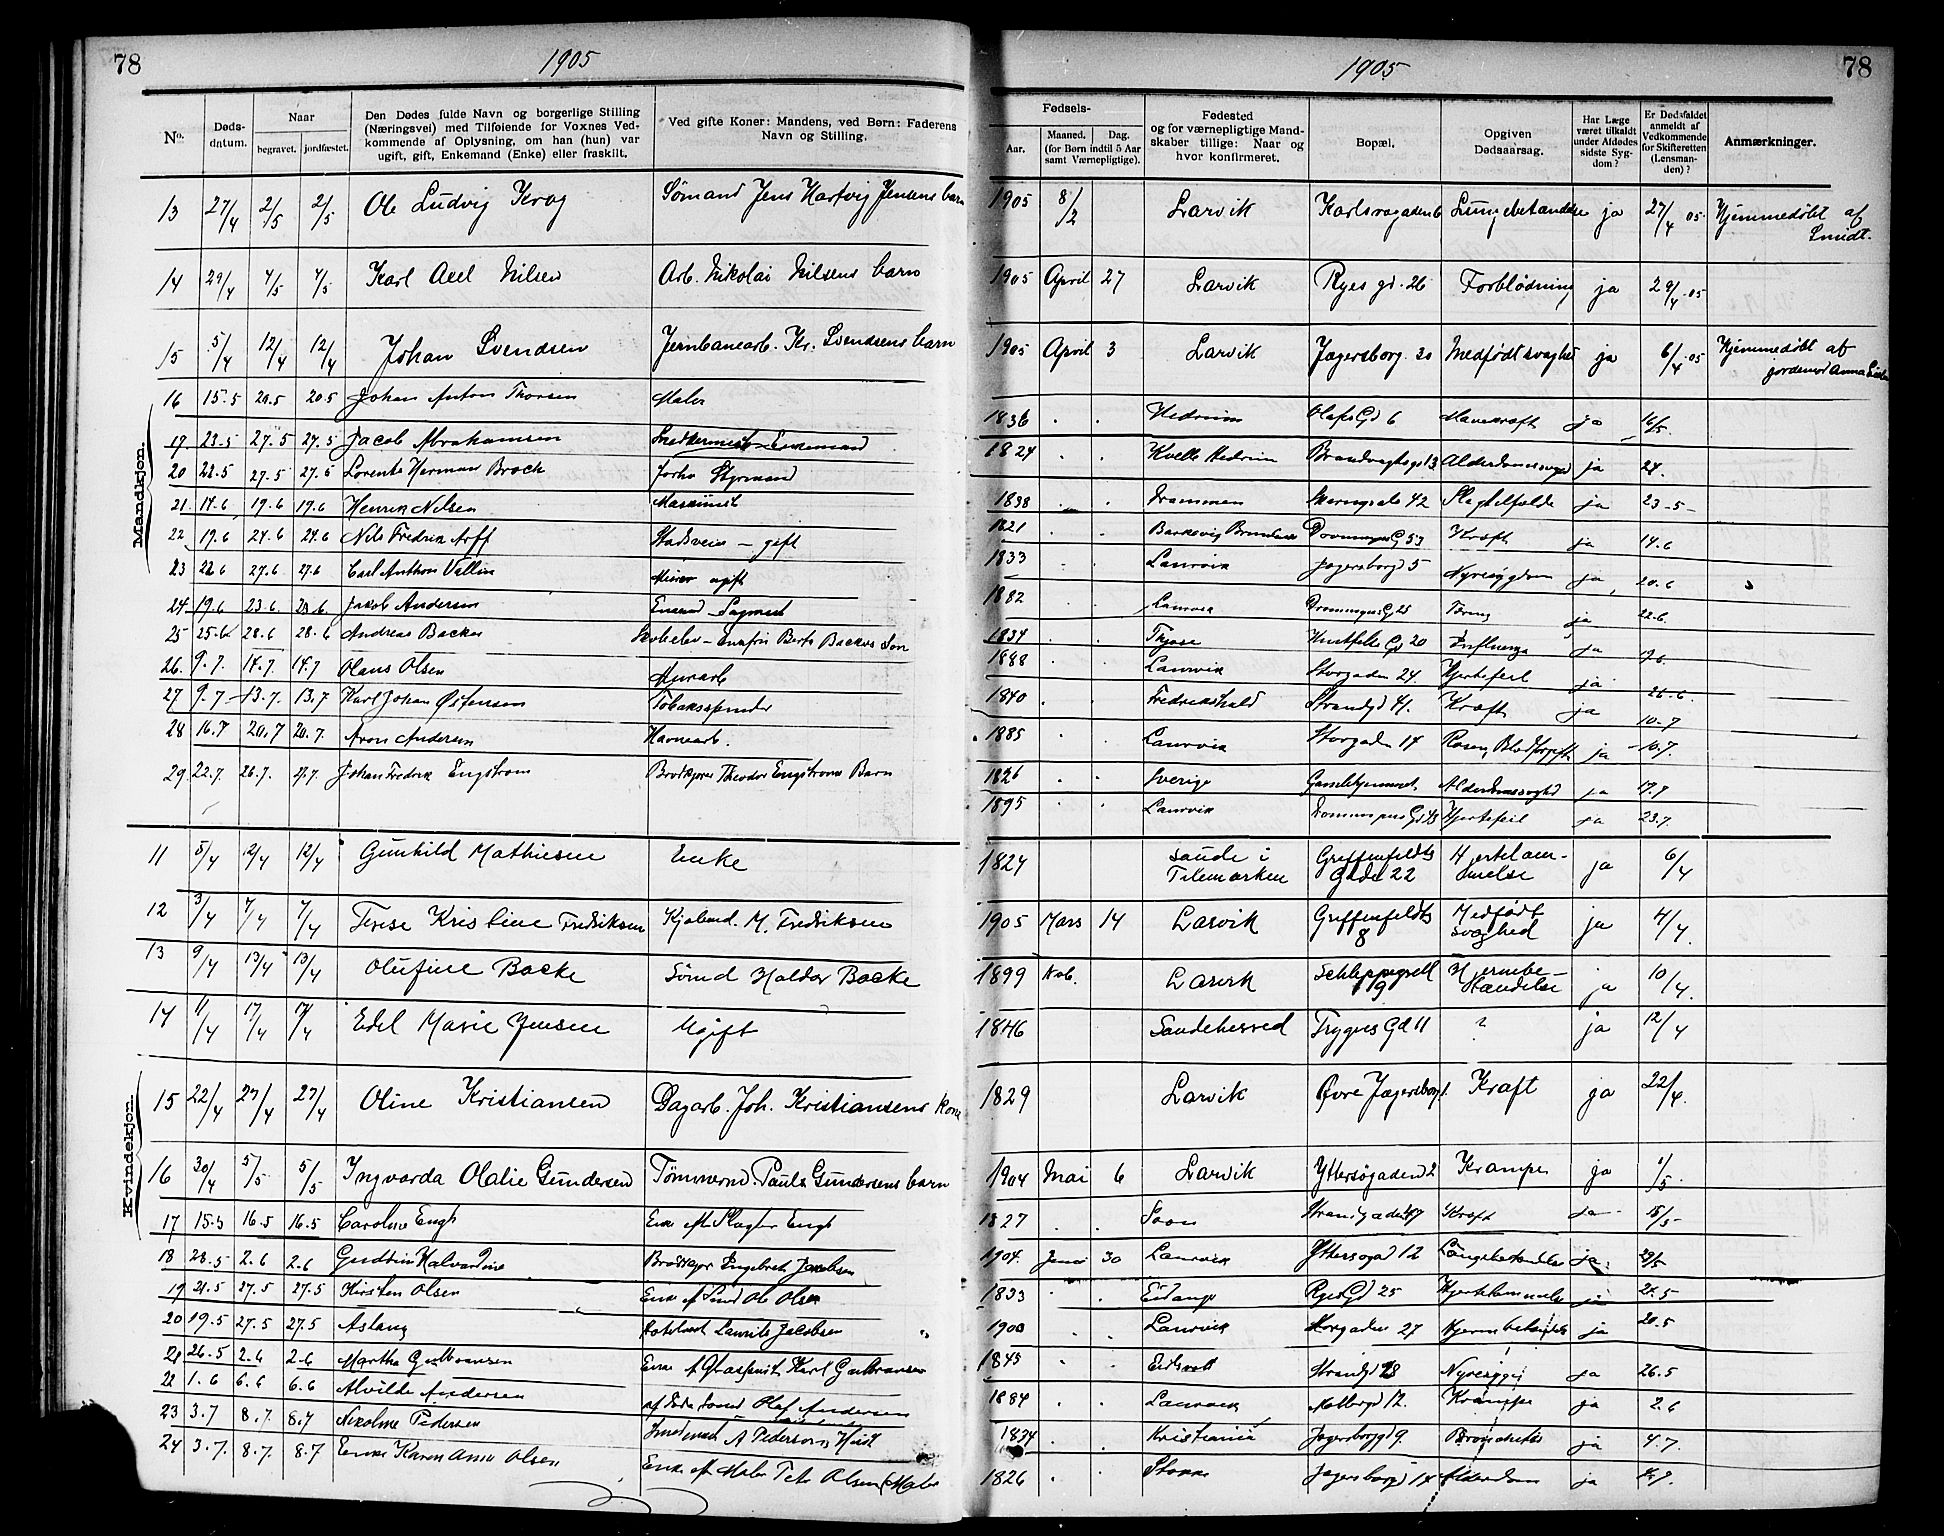 78
1905
No.
Døds-
datum.
Naar
begravet.
jordfæstet.
Den Dødes fulde Navn og borgerlige Stilling
(Næringsvei) med Tilføiende for Voxnes Ved-
kommende af Oplysning, om han (hun) var
ugift, gift, Enkemand (Enke) eller fraskilt.
Ved gifte Koner: Mandens, ved Børn: Faderens
Navn og Stilling.
Mandkjøn.
13 27/4 2/5 2/5 Ole Ludvig Krog Sømand Jens Hartvig Jensens barn
14 29/4 4/5 4/5 Karl Axel Nilsen Arb. Nikolai Nilsens barn
15 5/4 12/4 12/4 Johan Svendsen Jernbanearb. Kr. Svendsens barn
16 15.5 20.5 20.5 Johan Anton Thorsen Maler
19. 23.5 27.5 27.5 Jacob Abrahamsen Snedkermest. Enkemand
20 22.5 27.5 27.5 Lorents Herman Brock Styrmand
21 14.6 19.6 19.6 Henrik Nilsen Maskinist
22 19.6 24.6 24.6 Nils Fredrik Arff – gift
23 22.6 27.6 27.6 Carl Anthon Vallin
24 19.6 23.6. 23.6 Jakob Andersen
25 25.6 28.6 28.6 Andreas Backe Backes Søn
26. 9.7. 14.7. 14.7 Olaus Olsen Murarb
27 9.7 – 13.7. 13.7 Karl Johan Østensen Tobaksspinder
28 16.7 20.7 20.7. Aron Andersen Havnearb.
29. 22.7. 26.7. 27.7. Johan Fredrik Engstrøm Brødkjører Theodor Engstrøms Barn
Kvindekjøn.
11 5/4 12/4 12/4 Gunhild Mathiesen Enke
12 3/4 7/4 7/4 Terese Kristine Fredriksen Kjøbmd. M. Fredriksen
13 9/4 13/4 13/4 Olufine Backe Sømd Haldor Backe
14 11/4 17/4 17/4 Edel Marie Jensen Ugift
15 22/4 27/4 27/4 Oline Kristiansen Dagarb. Joh. Kristiansens kone
16 30/4 5/5 5/5 Ingvarda Olalie Gundersen Tømmermd. Paul Gundersens barn
17 16.5 16.5 Caroline Engh Enke eft Slagter Engh
18 28.5 2.6 2.6 Halvardine Brødkjører Engebret Jakobsen
19 21.5 27.5 27.5 Kirsten Olsen Enke ef Ole Olsen
20 19.5 27.5 27.5 Aslaug Laurits Jacobsen
21 26.5 2.6 2.6 Martha Gulbransen Enke Karl Gulbransen
22 1.6 6.6 6.6 Alvilde Andersen Olaf Andersen
23 3.7 8.7. 8.7 Nikoline Pedersen A Pedersens
24 3.7. 8.7. 8.7 Enke Karen Anne Olsen Enke eft Maler Olsen (Maler
1905
78
Fødsels-
Aar.
Maaned.
Dag.
(for Børn indtil 5 Aar
samt Værnepligtige).
Fødested
og for værnepligtige Mand-
skaber tillige: Naar og
hvor konfirmeret.
Bopæl.
Opgiven
Dødsaarsag.
Har Læge
været tilkaldt
under Afdødes
sidste Syg-
dom?
Er Dødsfaldet
anmeldt af
Vedkommende
for Skifteretten
(Lensman-
den)?
Anmærkninger.
1905 8/2 Larvik Karlsvogaden 6 Lungebetændelse ja 27/4 05 Hjemmedøbt af
Smidt.
1905 April 27 Larvik Ryes gd. 26 Forblødning ja 29/4.05
1905 April 3 Larvik Jegersborg. 20 Medfødt svaghet ja 6/4.05 Hjemmedøbt af
jordemor Anna
1836 Hedrum Olafs Gd 6 Mavekræft ja 16/5.
1824 Kvelle Hedrum Alderdomssvaghed ja 24.
1838 Drammen 42 Slagtilfælde ja 23–5–
1821 Kræft ja 14.6
1833 Laurvik Jegersborgd 5 Nyresygdom ja 20.6
1882 Laurvik Tæring ja 22.6.
1834 20 Influenza ja 19.6.
1888 Laurvik Storgaden 24. Hjertefeil ja 26.6
1840 Fredrikshald Strandgd 41. Kræft ja 10–7
1885 Laurvik Storgaden 14 ja 10.7.
1826 Sverige Alderdomssvaghed ja 17.7
1895 Laurvik Hjertefeil ja 23.7.
1824 Saude i
Telemarken Griffenfeldts
Gade 22 Hjertelam-
melse ja 6/4
1905 Mars 14 Larvik Griffenfeldts
8 Medfødt
svaghed ja 4/4.
1899 Nob. Larvik Schleppegrell
19 Hjernebe-
tændelse ja 10/4.
1846 Sandeherred Trygves Gd 11 ? ja 12/4
1829 Larvik Øvre Jegersborg 1. Kræft ja 22/4.
1904 Mai 6 Larvik Yttersøgaden 2 Krampe ja 1/5.
1827 Soon Strandgaden 47 Kræft ja 15/5
1904. Juni 30 Laurvik Yttersøgd 12 Lungebetændelse ja. 29/5
1833 Eidanger Ryes Gd 25 Hjertelammelse ja 22.5
1900 Laurvik 27 ja 20.5
1843 Strandgd Nyresyge ja 26.5
1884 Laurvik 12. Krampe ja 2.6
1834 Kristiania Jegersborgd 9. Bronchitis ja 4.7.
1826 Stokke Jegersborgd 14 Alderdom ja